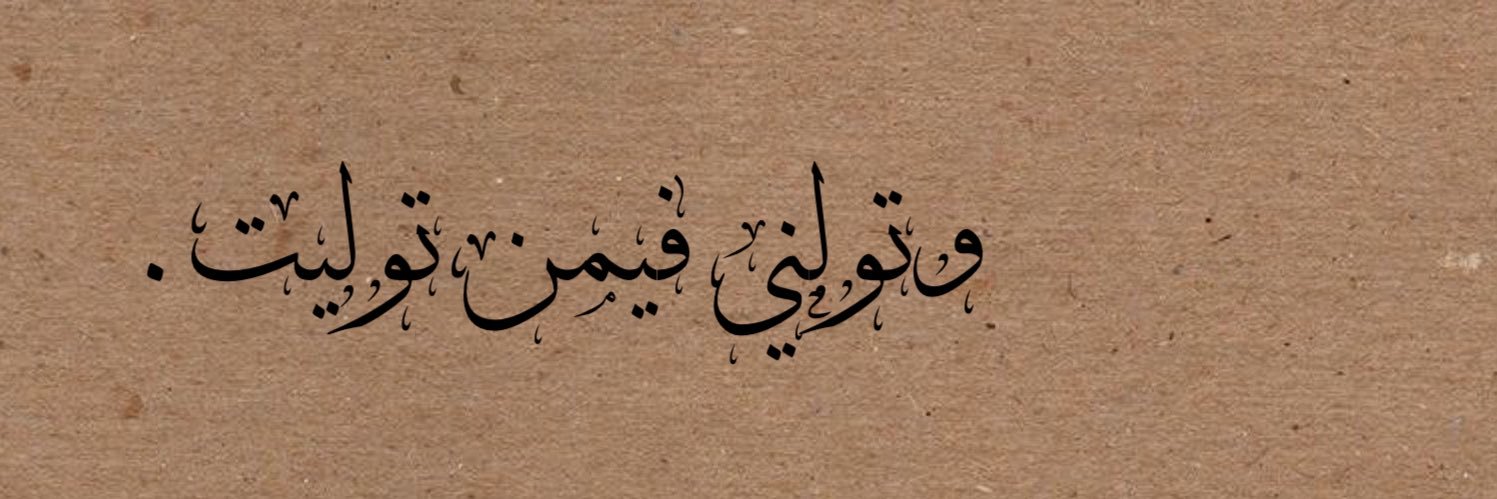 وتولني فيمن توليت .